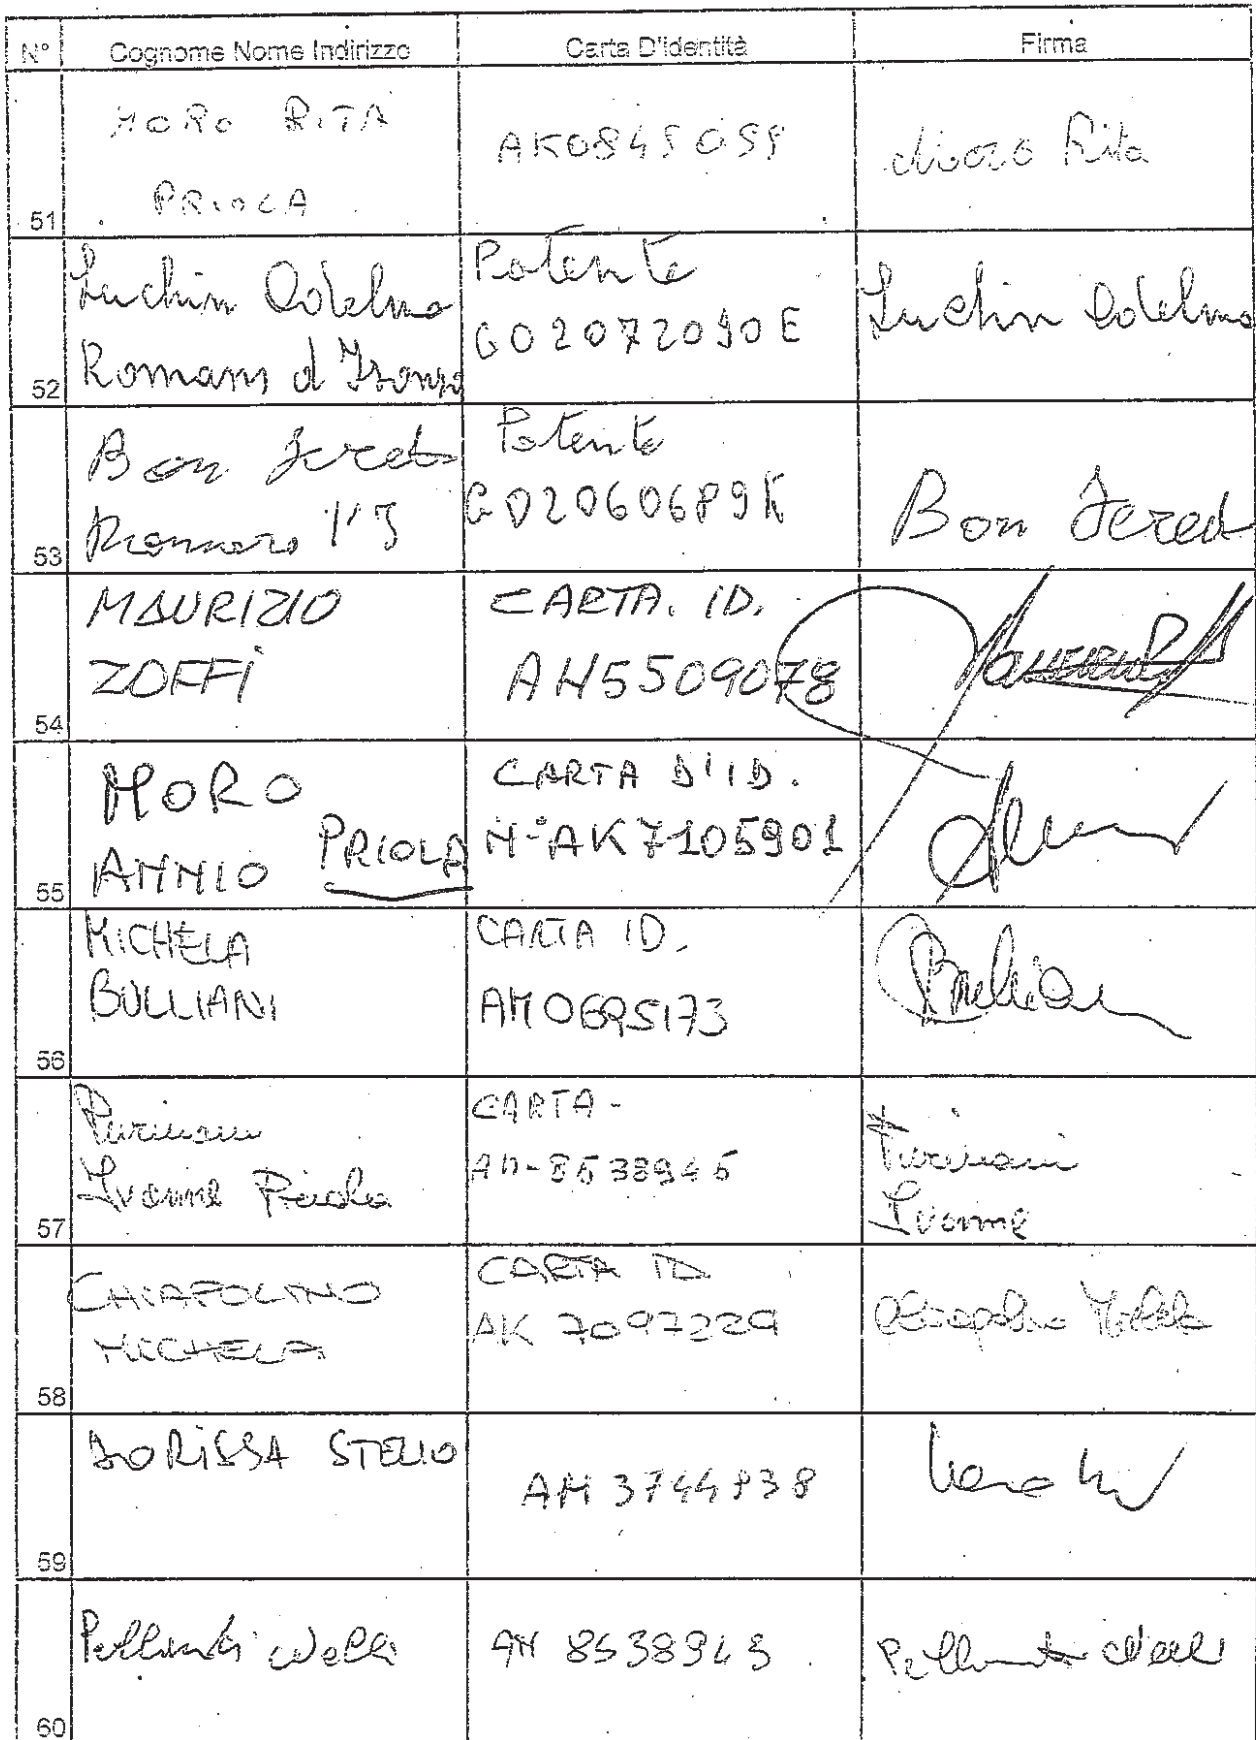 N° Cognome Nome Indirizzo Carta D'Identità Firma
MORO RITA
PRIOLA
AK0845059
Moro Rita
51
Luchin Odelmo
Romans d'Isonzo
Patente
GO2072090E
Luchin Odelmo
52
Bon
Patente
GO2060689K
Bon
53
MAURIZIO
ZOFFI
CARTA. ID.
AH5509078
54
MORO
ANNIO PRIOLA
CARTA D'ID.
N-° AK7105901
55
MICHELA
BULLIANI
CARTA ID.
AM0695173
Bulliani
56
Turinani
Ivonne Priola
CARTA -
AM-8538945
Turinani
Ivonne
57
CHIAPOLINO
MICHELA
CARTA ID
AK 7097229
Chiapolino Michela
58
DORISSA STELIO
AM 3744838
59
AM 8538943
60